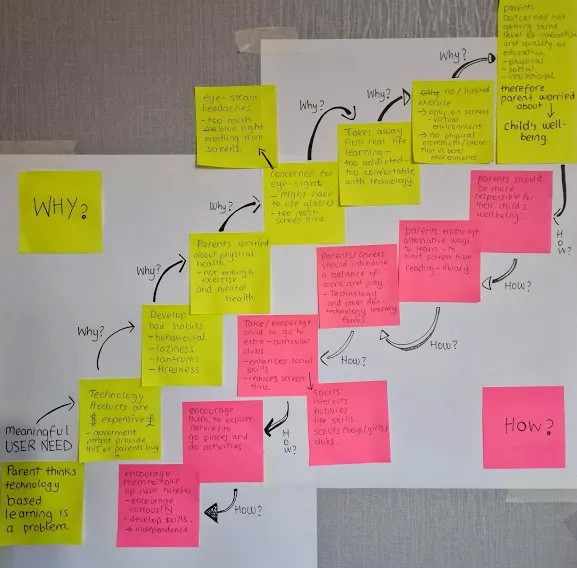 WHY?
meaningful
USER NEED
Parent thinks
technology
based
learning is
a problem
Technology
Products are
$ expensive £
- government
might provide
this or parents buy
it
Why?
Develop
bad habits
- behavioural
- laziness
- tantrums
- tiredness
Why?
Parents worried
about physical
health
- not enough
exercise
and mental
health.
Why?
concerned for
eye-sight
- might have
to use glasses
- too much
screen time
eye-strain
headaches
- too much
blue light
emitting from
screens.
Why?
Takes away
from real life
learning -
too addicted -
too comfortable
with technology.
Why?
no/limited
exercise
→ only on screens
- virtual
environment
→ no physical
movement/interac-
tion in
environments
Why?
parents
concerned not
getting same
level of interaction
and quality of
education.
- physical
- social
- emotional
therefore
parent worried
about
child's well-
being.
HOW?
parents should
be more
responsible for
their child's
wellbeing.
HOW?
parents encourage
alternative ways
to learn - to
limit screen time
reading - library
HOW?
Parents/carers
should introduce
a balance of
work and play.
- Technology
and other non-
technology learning
forms.
HOW?
Take/encourage
child to go to
extra-curricular
clubs
- enhances social
skills
- reduces screen
time
sports
interests
hobbies
life skills
scouts (boys/girls)
clubs.
HOW?
encourage
them to explore
nature/to
go places and
do activities
HOW?
encourage
them to take
up new hobbies
- encourage
curiousity
- develop skills.
→ independence
HOW?